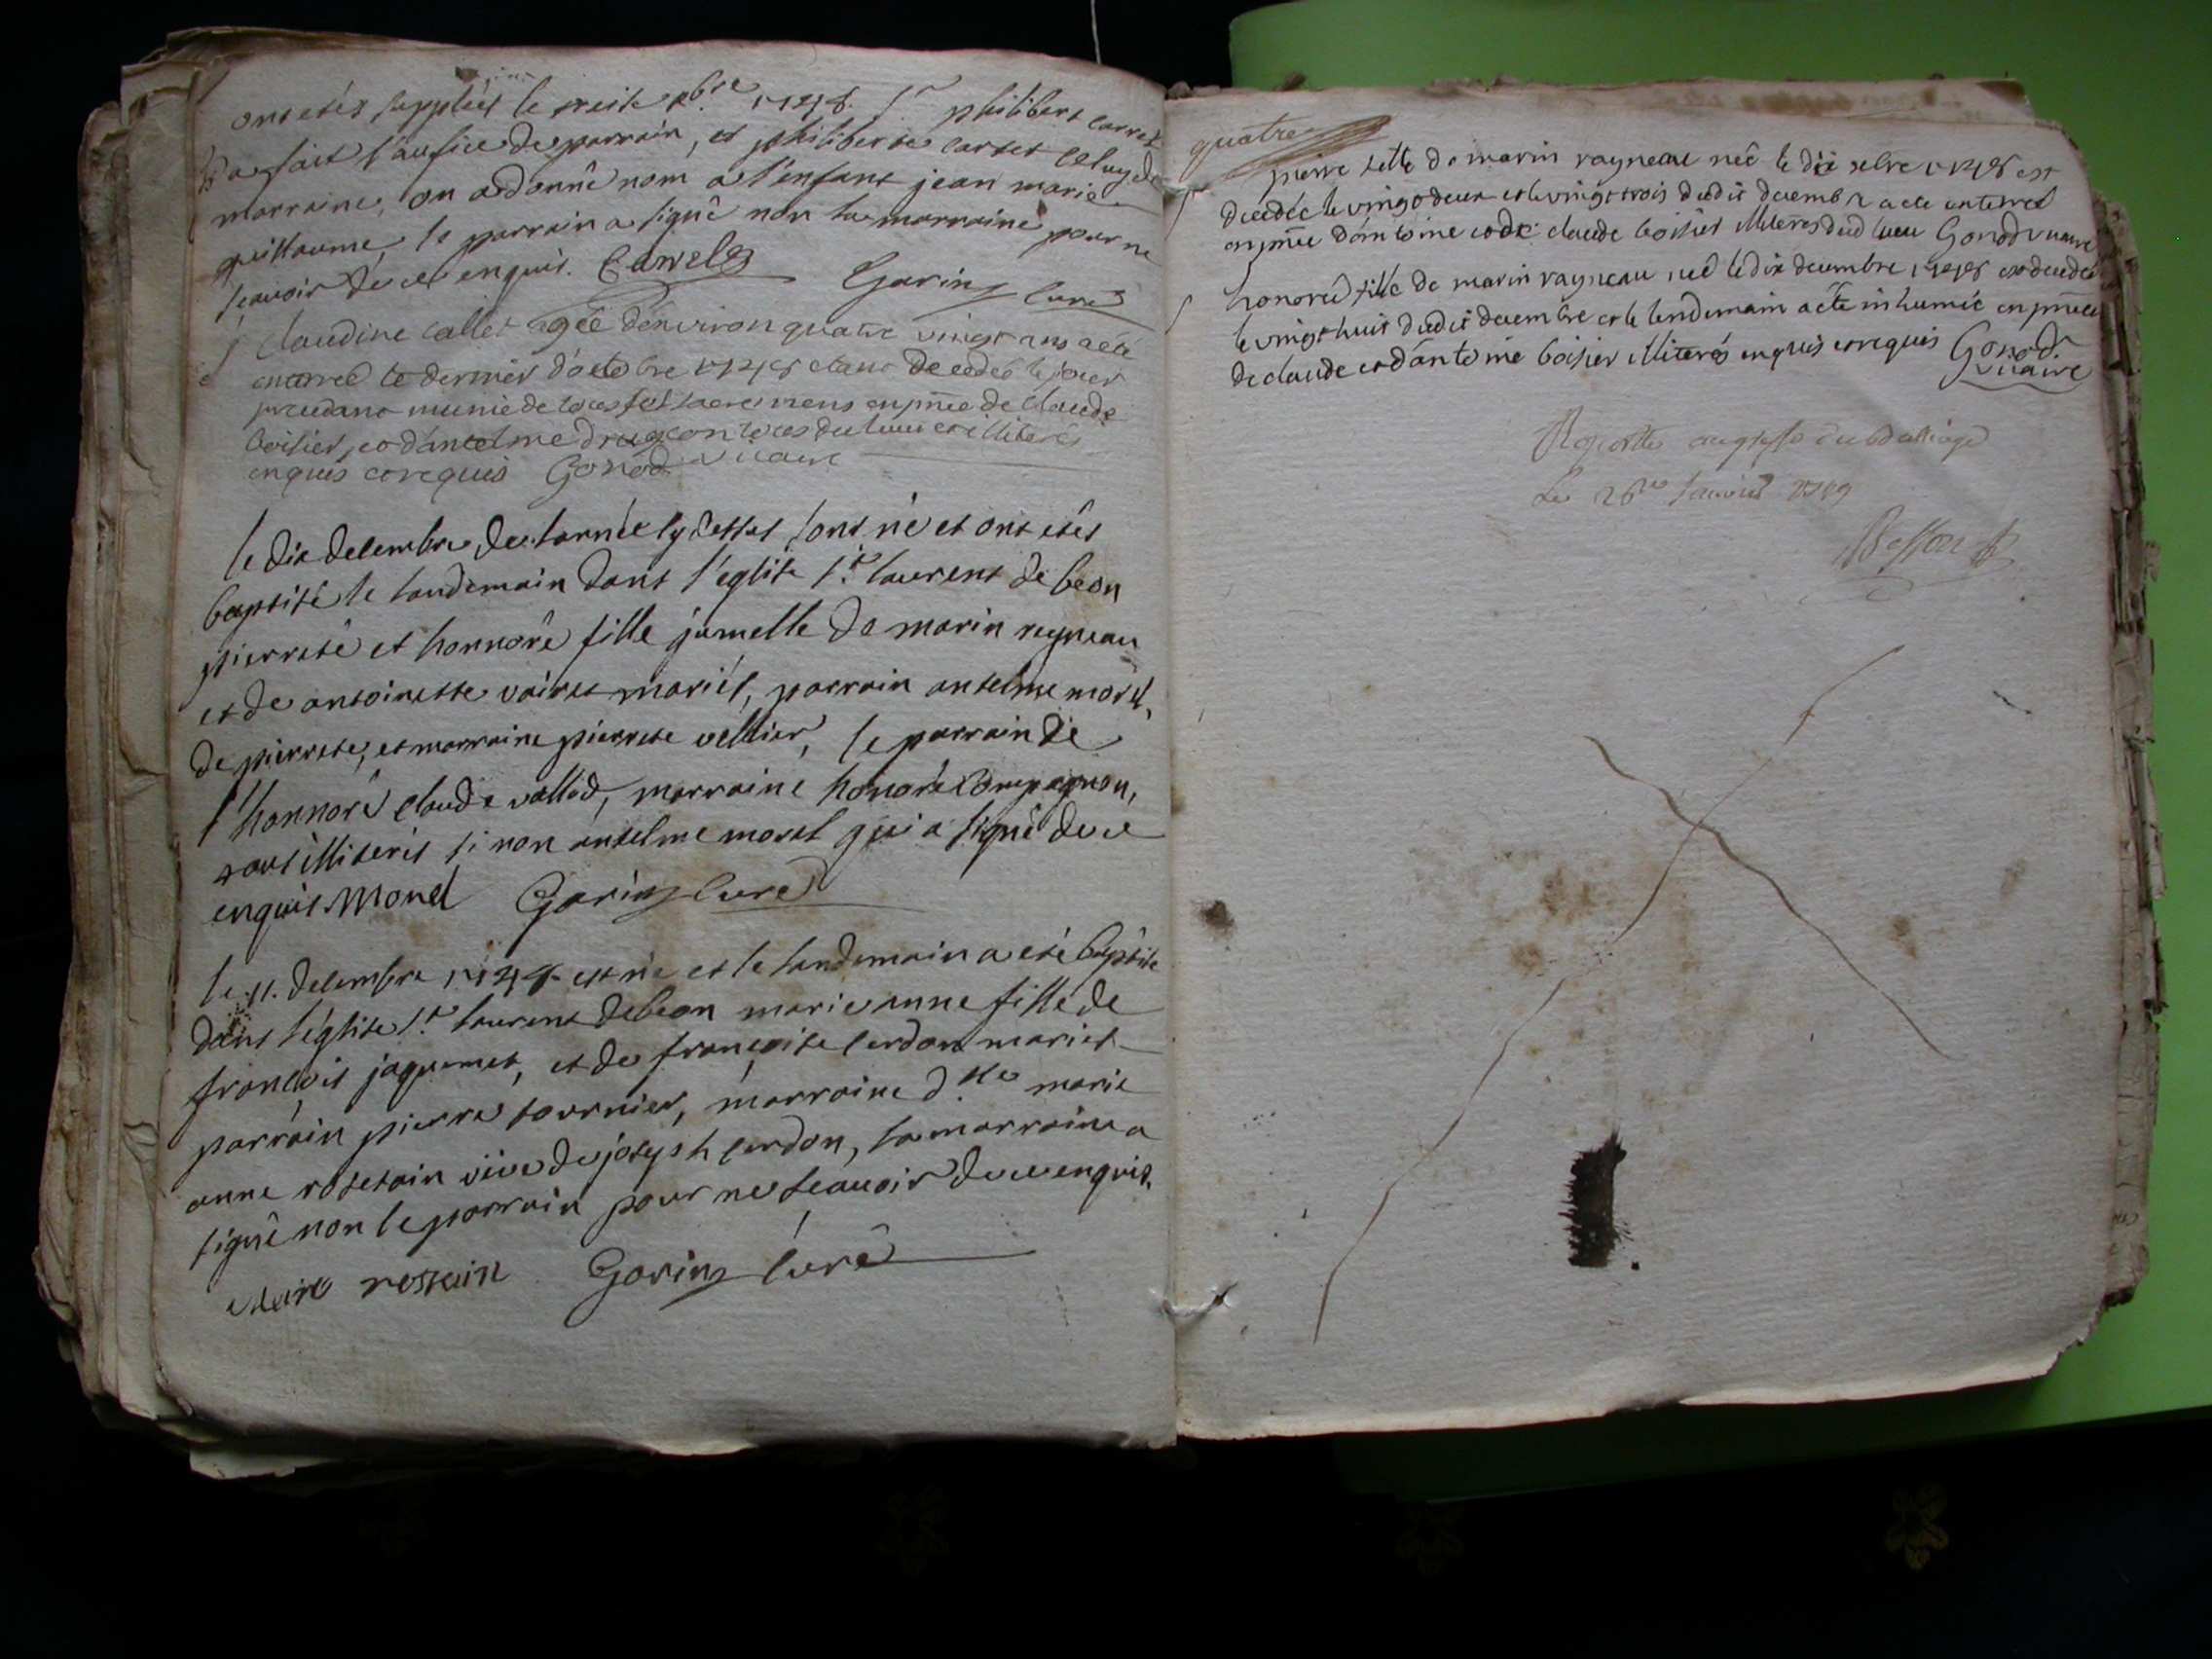 ont etés suppléés le treise xbre 1748. Sr philibert carret
a fait l'aufice de parrain, et philiberte carret celuy de
marraine, on a donné nom a l'enfant jean marie
guillaume, le parrain a signé non la marraine pour ne
scavoir de ce enquis. Carret Garin curé
claudine callet agée d'environ quatre vingt ans a été
enterreé le dernier d'octobre 1748 etant decedeé le jour
precedant munie de tous ses sacremens en pnce de claude
boisier, et d'antelme drugeon tous du lieu et illiterés
enquis et requis Gonod vicaire
le dix decembre de l'année cy dessus sont né et ont etés
baptisé le landemain dans l'eglise St laurent de beon
pierrete et honnoré fille jumelle de marin reyneau
et de antoinette voiret mariés, parrain antelme morel,
de pierrete, et marraine pierrete vellier, le parrain de
l'honnoré claude vallod, marraine honorée compagnon,
tous illiterés si non antelme morel qui a signé de ce
enquis. Morel Garin curé
le 11. decembre 1748 est né et le landemain a eté baptisé
dans l'église St laurent de beon marie anne fille de
francois jaquemet, et de francoise cerdon mariés
parrain pierre fournier, marraine dlle marie
anne rostain vive de joseph cerdon, la marraine a
signé non le parrain pour ne scavoir de ce enquis.
marie rostain Garin curé
quatre
pierre fille de marin rayneau neé le dix xbre 1748 est
decedée le vingt deux et le vingt trois dudit decembre a eté enterreé
en pnce d'antoine et de claude boisier illiterés dud lieu Gonod vicaire
honoreé fille de marin rayneau neé le dix decembre 1748 est decedeé
le vingt huit dudit decembre et le lendemain a eté inhumée en pnce
de claude et d'antoine boisier illiterés enquis et requis Gonod
vicaire
Raporté au greffe du balliage
Le 26me Janvier 1749